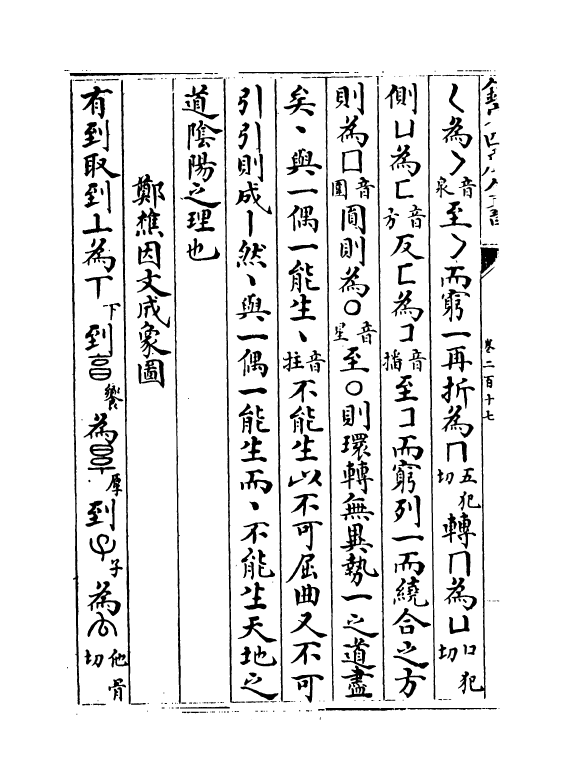 卷二百十七
𡿨為㇏音泉至㇏而窮一再折為冂五犯切轉冂為凵口犯切
側凵為匚音方反匚為コ音播至コ而窮列一而繞合之方
則為囗音圍圎則為○音星至○則環轉無異勢一之道盡
矣丶與一偶一能生丶音拄不能生以不可屈曲又不可
引引則成丨然丶與一偶一能生而丶不能生天地之
道陰陽之理也
鄭樵因文成象圖
有到取到丄為丅下到𠅠饗為𣆪厚到𢀇子為𠫓他骨切